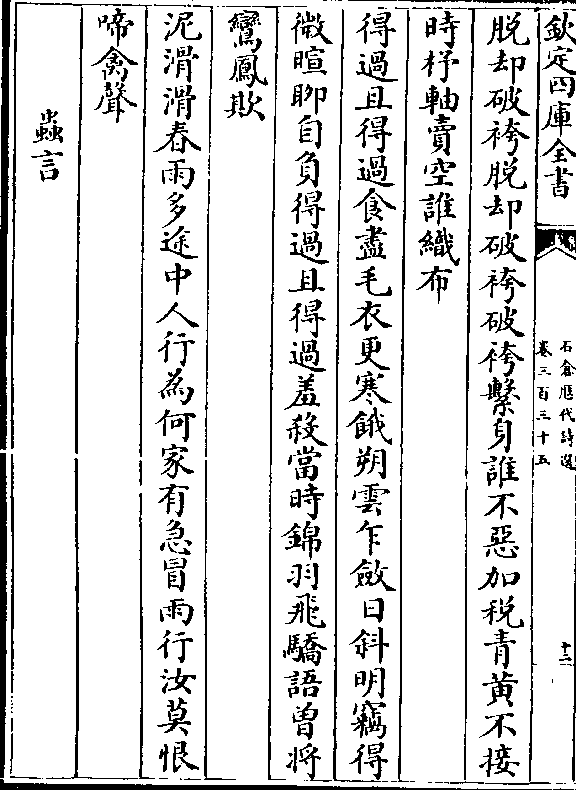 欽定四庫全書
石倉歷代詩選
卷三百三十五
十二
脱却破袴脱却破袴破袴繫身誰不惡加税青黄不接
時杼軸賣空誰織布
得過且得過食盡毛衣更寒餓朔雲乍斂日斜明竊得
微暄聊自負得過且得過羞殺當時錦羽飛驕語曽将
鸞鳳欺
泥滑滑春雨多途中人行為何家有急冒雨行汝莫恨
啼禽聲
蟲言